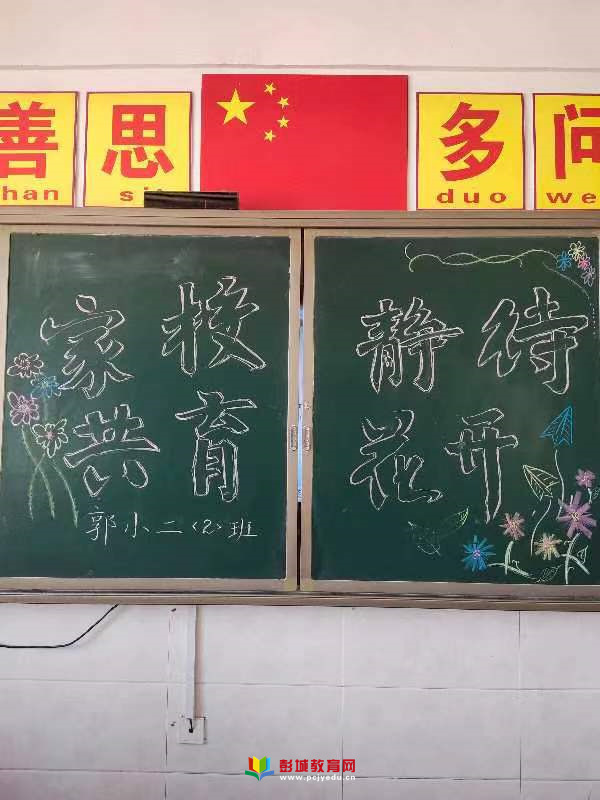 善思 多问
shan si duo we
家校 静待
共育 花开
郭小二〈2〉班
彭城教育网
www.pcjyedu.cn